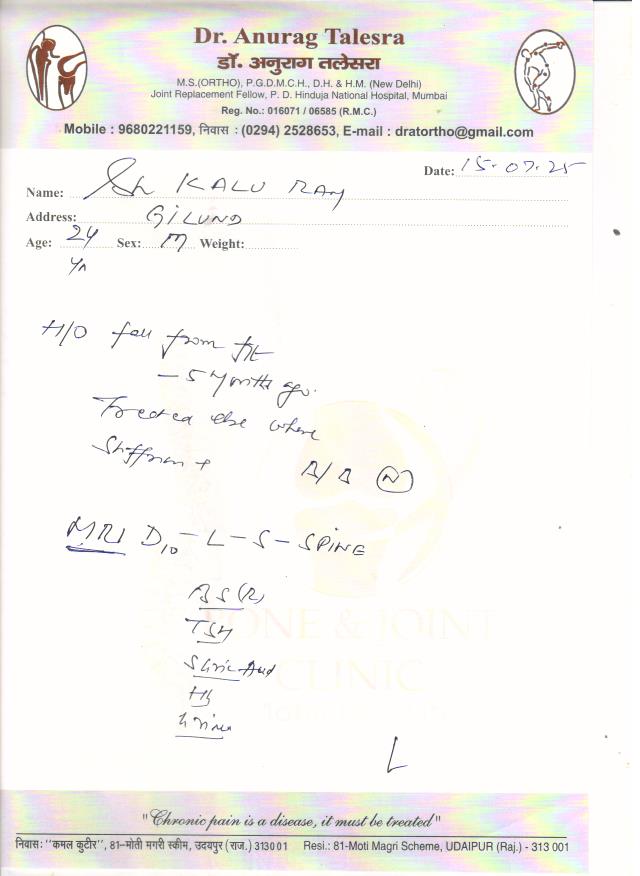 Dr. Anurag Talesra
डॉ. अनुराग तलेसरा
M.S.(ORTHO), P.G.D.M.C.H., D.H. & H.M. (New Delhi)
Joint Replacement Fellow, P. D. Hinduja National Hospital, Mumbai
Reg. No.: 016071 / 06585 (R.M.C.)
Mobile : 9680221159, निवास : (0294) 2528653, E-mail : dratortho@gmail.com
Date: 15-07-25
Name: Sh KALU RAM
Address: GILUND
Age: 24 Sex: M Weight:
Yr
H/O fall from
- 5 Months ago.
Treated else where
Stiffness +
MRI D10 - L - S - SPINE
BS (R)
TSH
Hb
Urine
BONE & JOINT
CLINIC
"Chronic pain is a disease, it must be treated"
निवास: "कमल कुटीर", 81-मोती मगरी स्कीम, उदयपुर (राज.) 313001 Resi.: 81-Moti Magri Scheme, UDAIPUR (Raj.) - 313 001